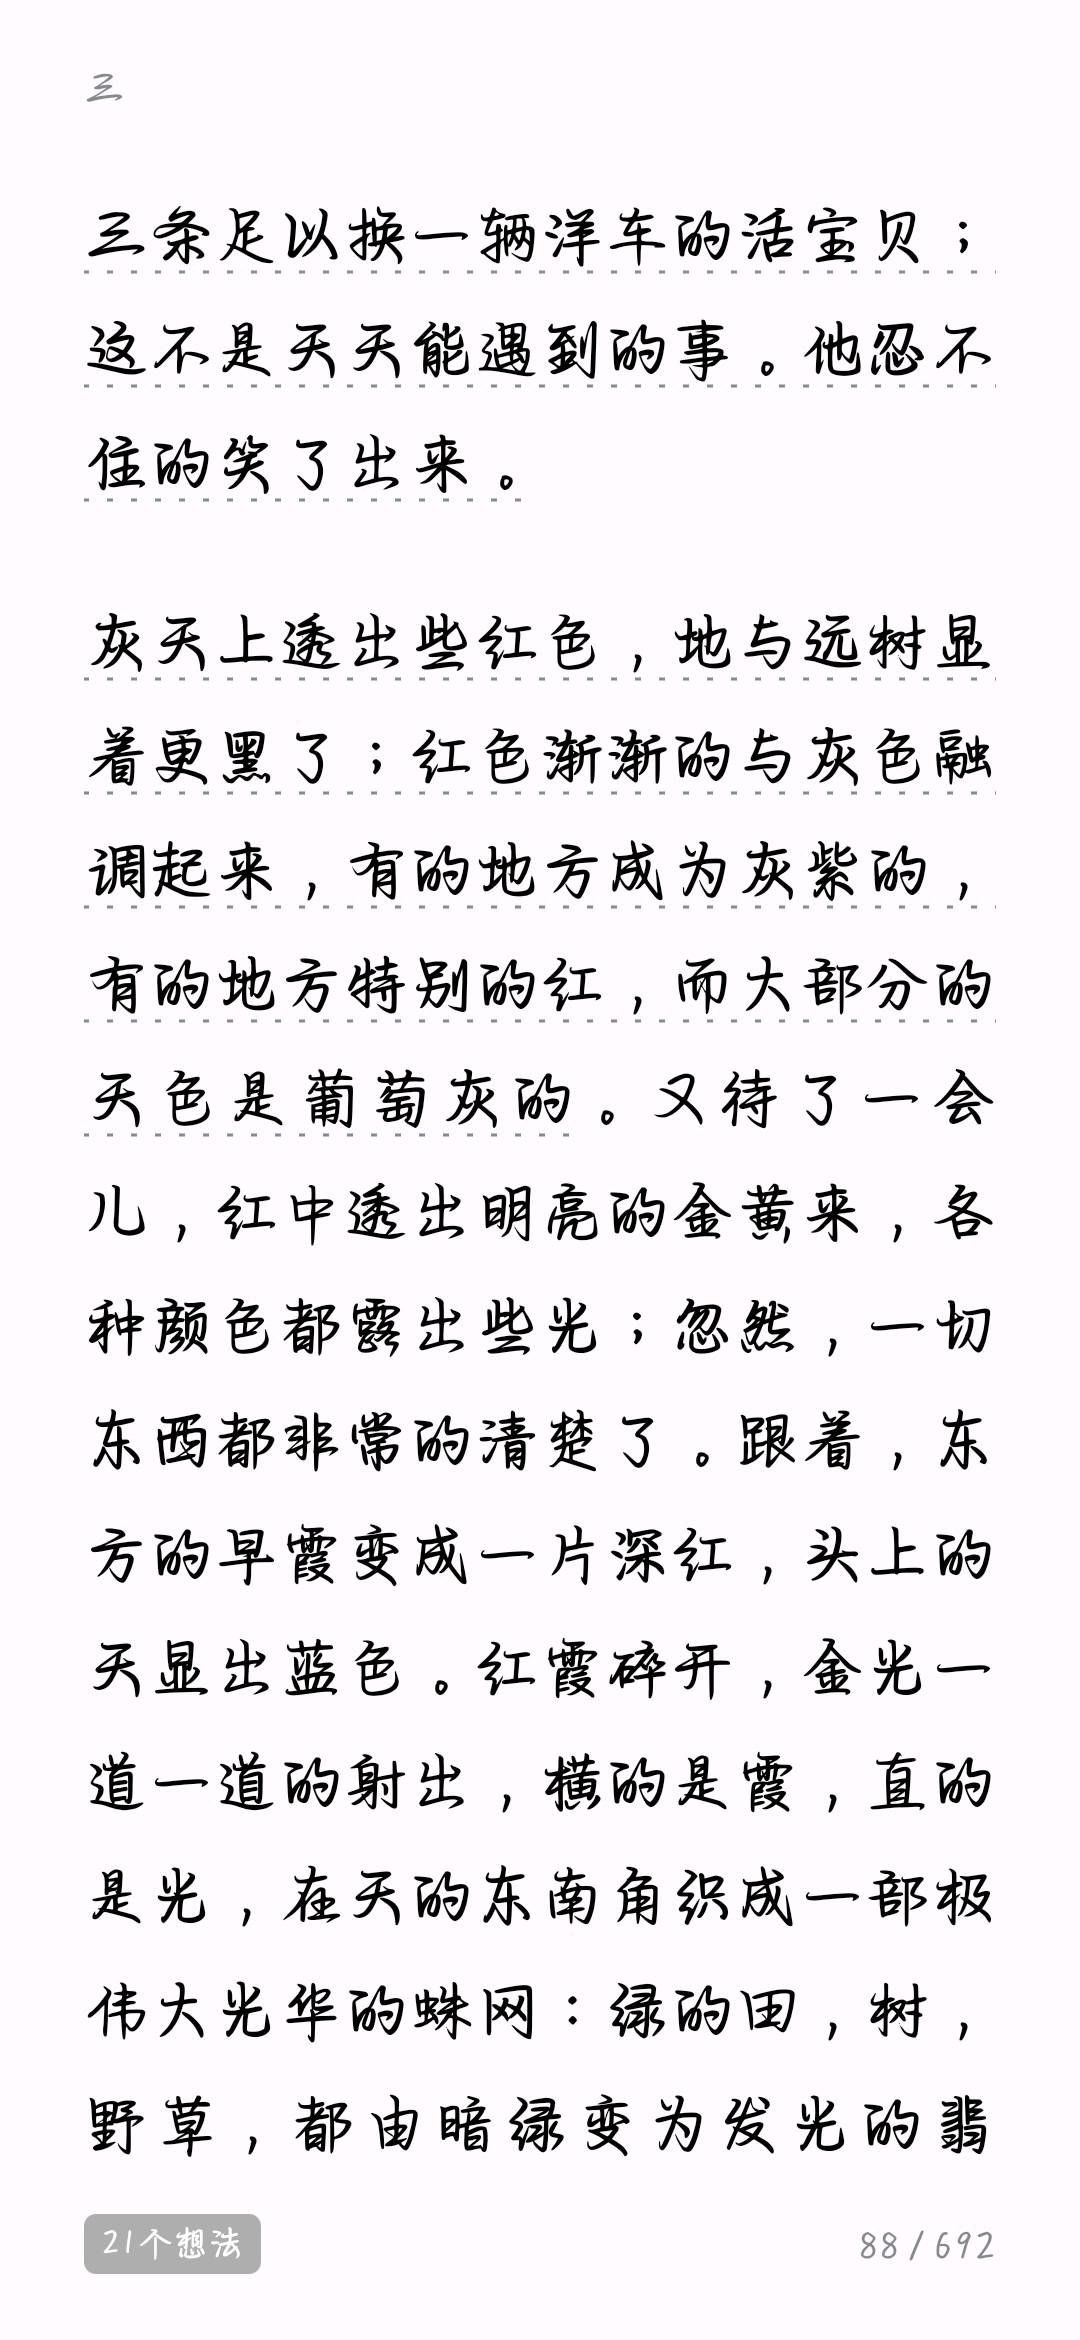 三
三条足以换一辆洋车的活宝贝；
这不是天天能遇到的事。他忍不
住的笑了出来。
灰天上透出些红色，地与远树显
着更黑了；红色渐渐的与灰色融
调起来，有的地方成为灰紫的，
有的地方特别的红，而大部分的
天色是葡萄灰的。又待了一会
儿，红中透出明亮的金黄来，各
种颜色都露出些光；忽然，一切
东西都非常的清楚了。跟着，东
方的早霞变成一片深红，头上的
天显出蓝色。红霞碎开，金光一
道一道的射出，横的是霞，直的
是光，在天的东南角织成一部极
伟大光华的蛛网：绿的田，树，
野草，都由暗绿变为发光的翡
21个想法
88/692